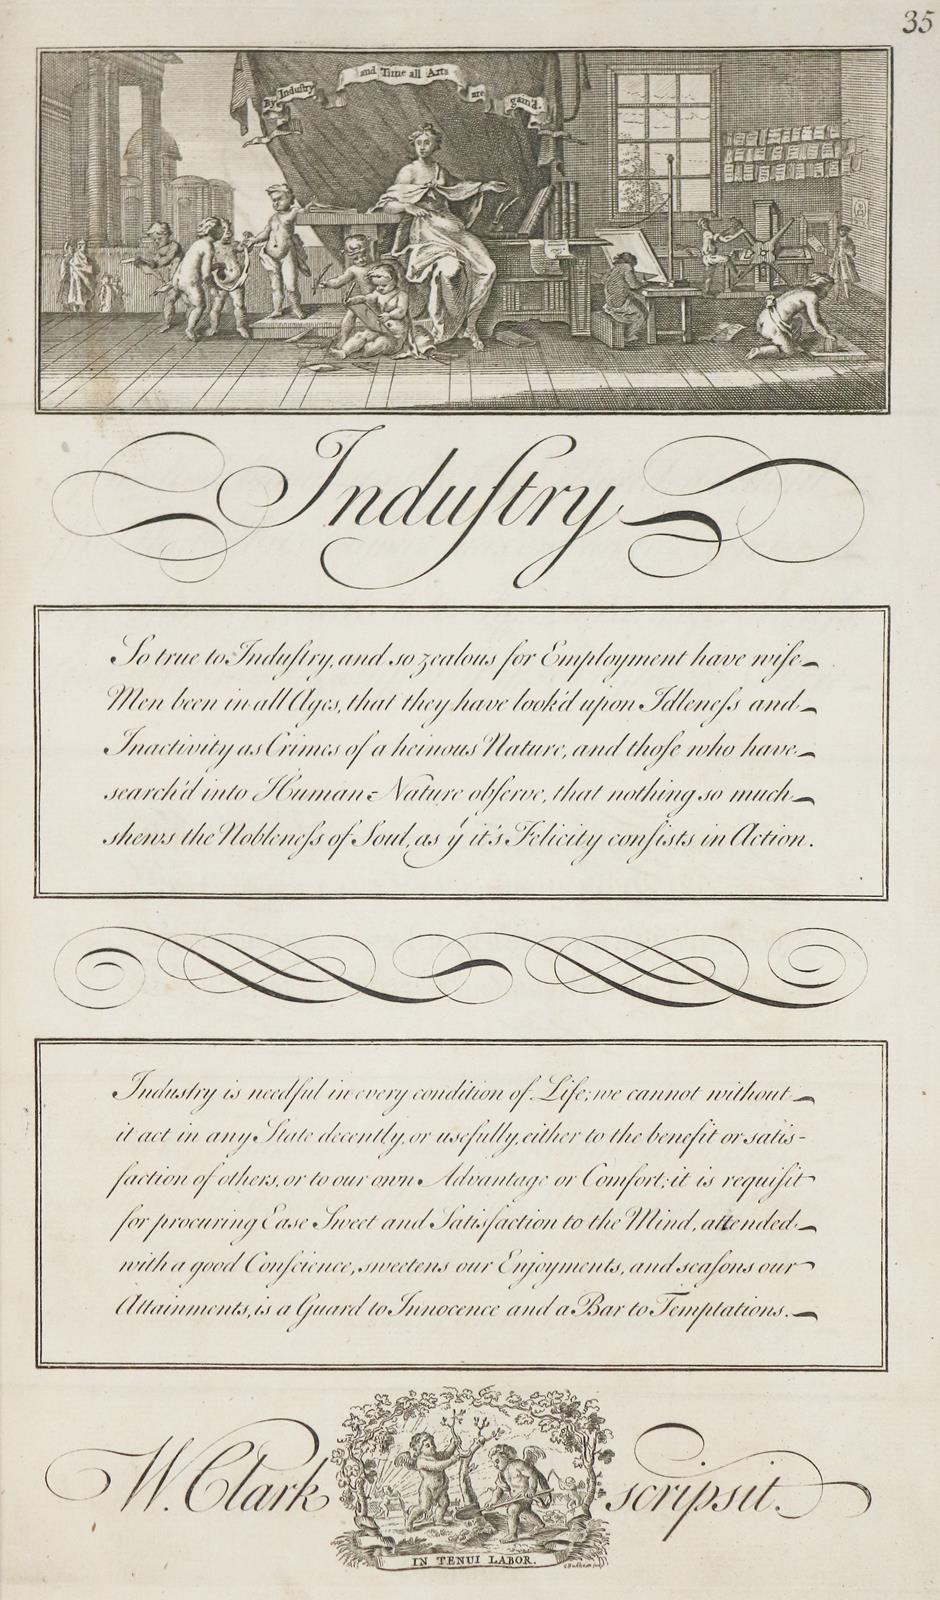 35
By Industry and Time all Arts are gain'd.
Induſtry
So true to Induſtry, and so zealous for Employment have wiſe
Men been in all Ages, that they have look'd upon Idleneſs and
Inactivity as Crimes of a heinous Nature, and thoſe who have
search'd into Human=Nature obſerve, that nothing so much
shews the Nobleneſs of Soul, as yt it's Felicity conſists in Action.
Industry is needful in every condition of Life; we cannot without
it act in any State decently, or usefully, either to the benefit or satis-
faction of others, or to our own Advantage or Comfort; it is requiſit
for procuring Ease Sweet and Satisfaction to the Mind, attended
with a good Conſcience, sweetens our Enjoyments, and seaſons our
Attainments, is a Guard to Innocence and a Bar to Temptations.
W. Clark scripsit.
IN TENUI LABOR.